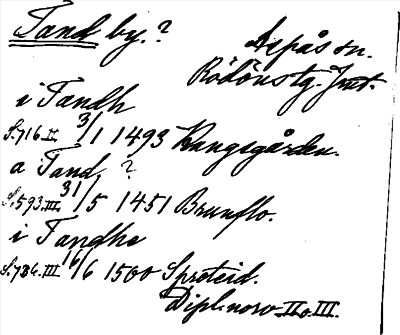 Tand by.?
Aspås sn.
Rödöns tg. Jmt.
i Tandh
S.716.II. 3/1 1493 Kungsgården.
a Tand ?
S.593.III. 31/5 1451 Brunflo.
i Tandhe
S.784.III 16/6 1500 Sproteid.
Dipl. norv. II o III.